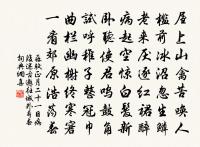 屋上山禽苦喚人
檻前冰沼忽生鱗
老來厭逐紅裙醉
病起空驚白髮新
臥聽使君鳴鼓角
試呼稚子整冠巾
曲欄幽榭終寒窘
一看郊原浩蕩春
蘇軾正月二十一日病
後述古邀往城外尋春